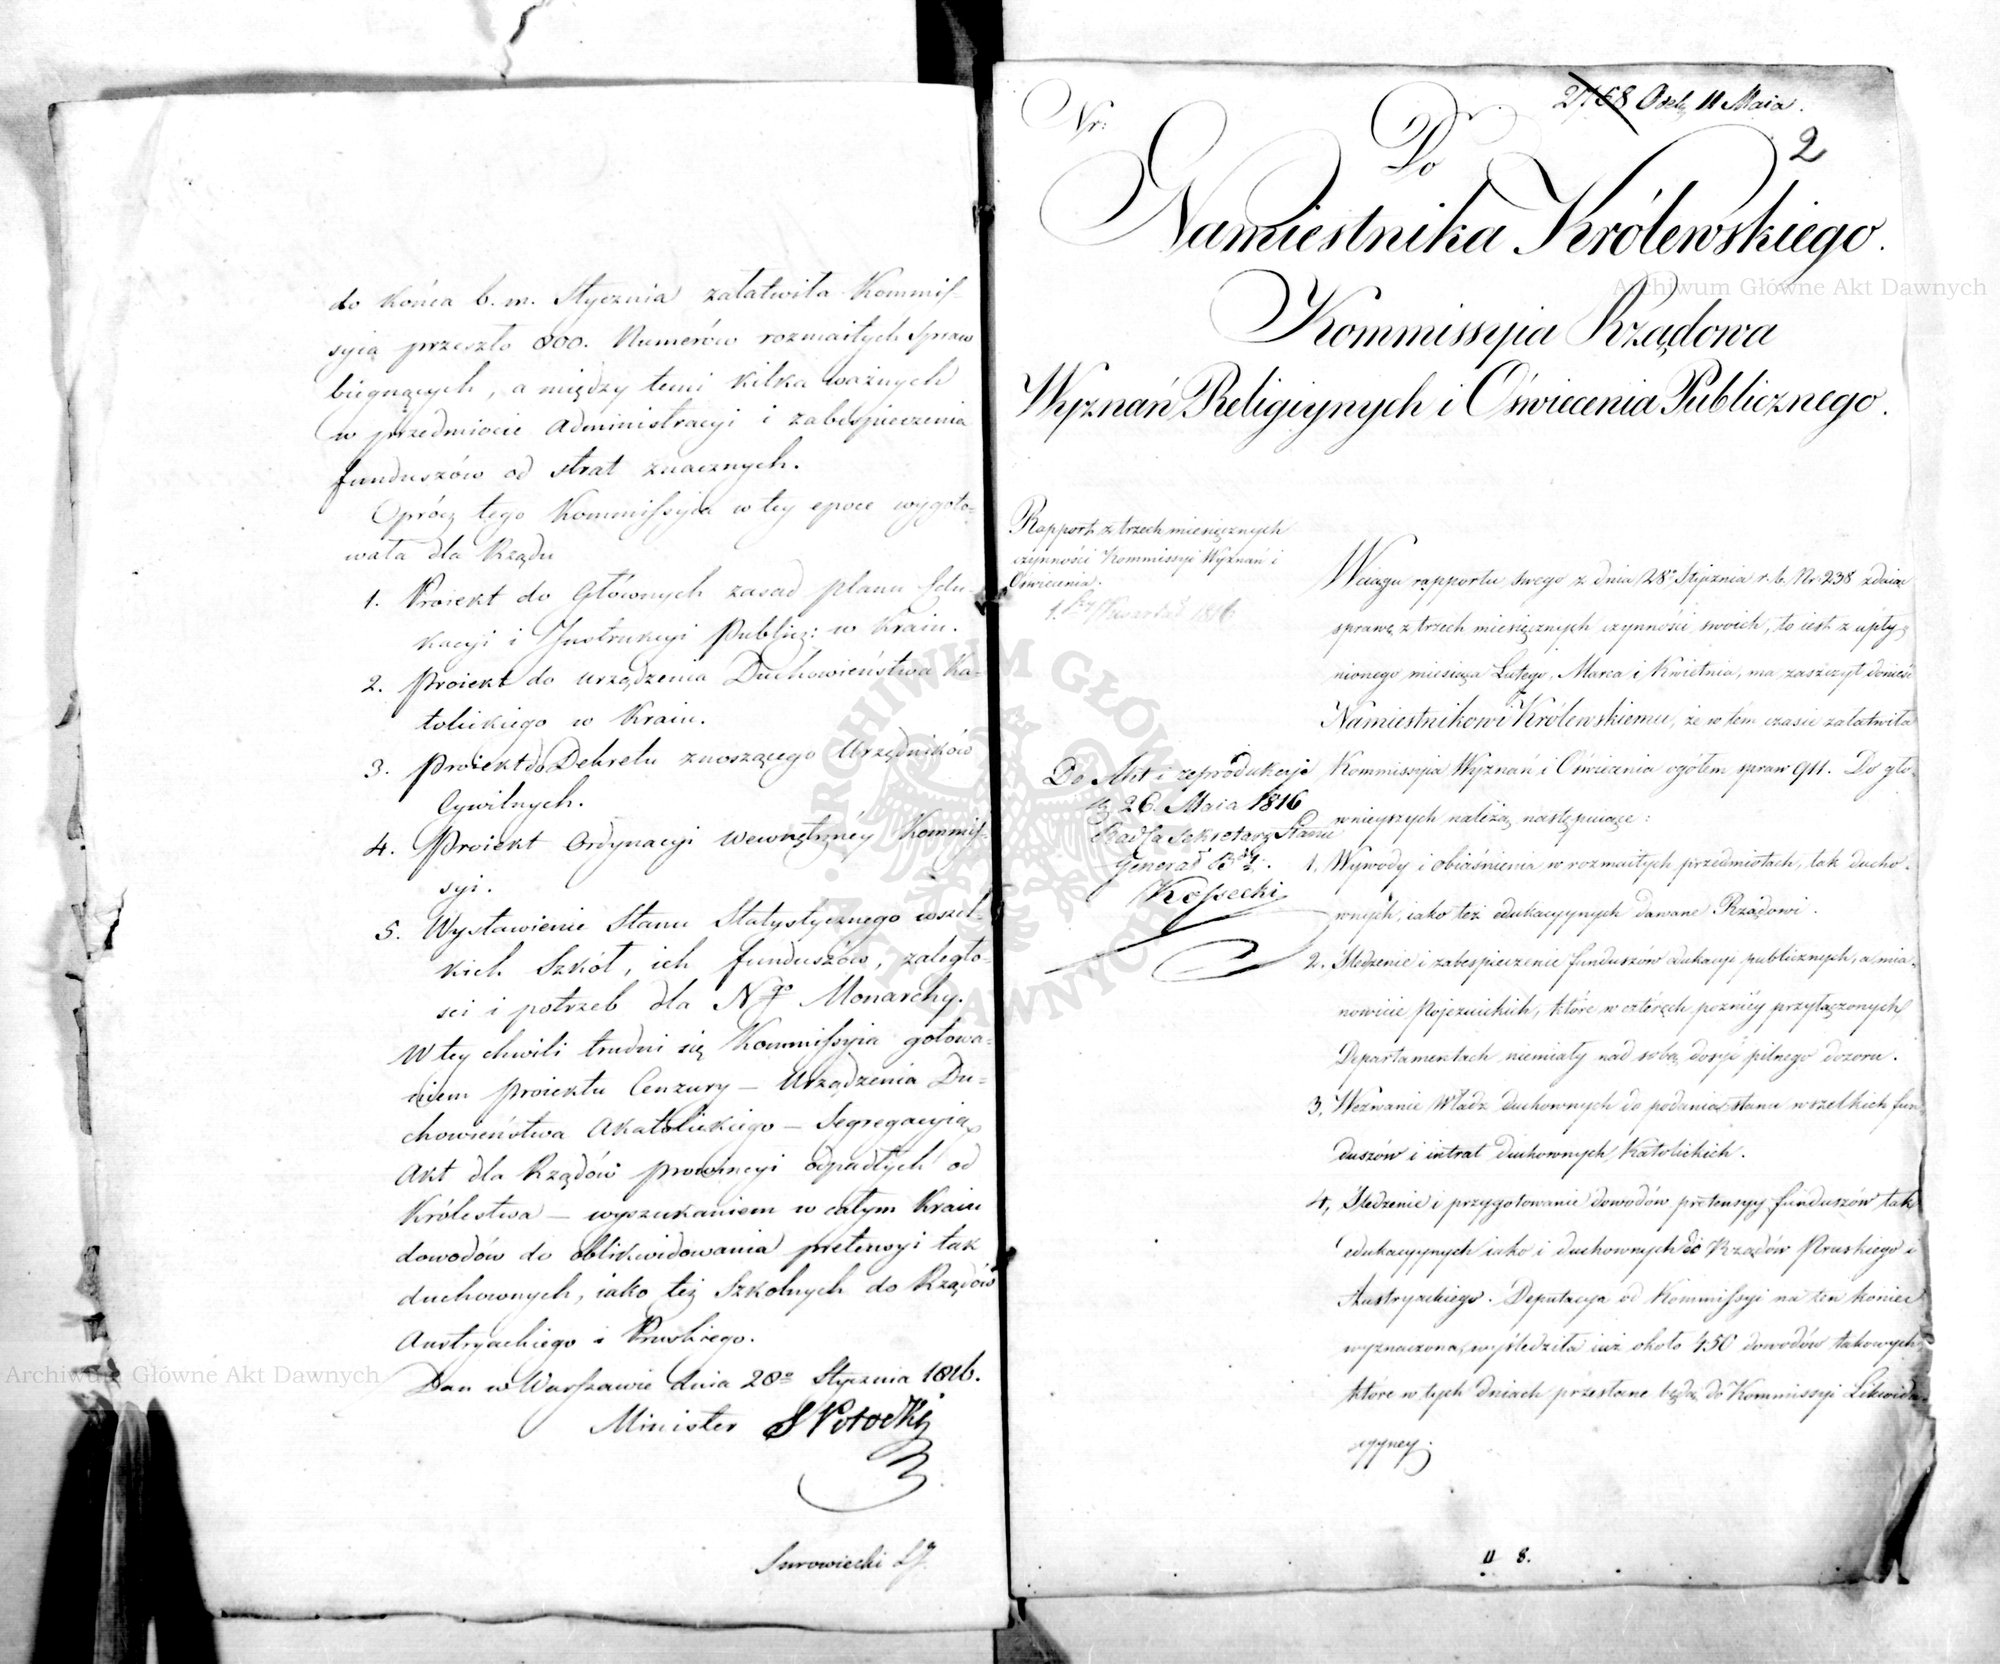 do końca b. m. Stycznia załatwiła Kommis-
syia przeszło 800. Numerów rozmaitych spraw
biegnących, a między temi kilka ważnych
w przedmiocie Administracyi i zabespieczenia
funduszów od strat znacznych.
Oprócz tego Kommissyia w tey epoce wygoto-
wała dla Rządu
1. Proiekt do Głównych zasad planu Edu-
kacyi i Instrukcyi Publicz: w Kraiu.
2. Proiekt do urządzenia Duchowieństwa Ka-
tolickiego w Kraiu.
3. Proiekt do Dekretu znoszącego Urzędników
Cywilnych.
4. Proiekt Ordynacyi wewnętrzney Kommis-
syi.
5. Wystawienie Stanu Statystycznego wszel-
kich Szkół, ich funduszów, zaległo-
sci i potrzeb dla Ngo Monarchy.
W tey chwili trudni się Kommissyia gotowa-
niem proiektu Cenzury – Urządzenia Du-
chowieństwa Akatolickiego – Segregacyią
Akt dla Rządów prowincyi odpadłych od
Królestwa – wyszukaniem w całym Kraiu
dowodów do oblikwidowania pretensyi tak
duchownych, iako też Szkolnych do Rządów
Austryackiego i Pruskiego.
Dan w Warszawie dnia 28o Stycznia 1816.
Minister S Potocki
Surowiecki
Nr:
2768 Odeb. 11 Maia.
2
Do
Namiestnika Królewskiego.
Kommissyia Rządowa
Wyznań Religiynych i Oświecenia Publicznego.
Rapport z trzech miesięcznych
czynności Kommissyi Wyznań i
Oświecenia.
1. Kwartał 1816
Do Akt i reprodukcyi
26. Maia 1816
Radca Sekretarz Stanu
Generał Bdy.
Kossecki
W ciągu rapportu swego z dnia 28o Stycznia r. b. No 238 zdaiąc
sprawę z trzech miesięcznych czynności swoich, to iest z upły-
nionego miesiąca Lutego, Marca i Kwietnia, ma zaszczyt donieść
Namiestnikowi Królewskiemu, że w tém czasie załatwiła
Kommissyia Wyznań i Oświecenia ogółem spraw 911. Do głó-
wnieyszych należą następuiące:
1. Wywody i obiaśnienia w rozmaitych przedmiotach, tak ducho-
wnych, iako też edukacyynych dawane Rządowi.
2. Śledzenie i zabespieczenie funduszów edukacyi publicznych, a mia-
nowicie Pojezuickich, które w czterech pozniey przyłączonych
Departamentach niemiały nad sobą dosyć pilnego dozoru.
3. Wezwanie Władz duchownych do podania stanu wszelkich fun-
duszów i intrat duchownych Katolickich.
4. Śledzenie i przygotowanie dowodów pretensyy funduszów tak
edukacyynych iako i duchownych do Rządów Pruskiego i
Austryackiego. Deputacya od Kommissyi na ten koniec
wyznaczona, wyśledziła iuż około 450 dowodów takowych,
które w tych dniach przesłane będą do Kommissyi Likwida-
cyyney.
11 8.
Archiwum Główne Akt Dawnych
Archiwum Główne Akt Dawnych
ARCHIWUM GŁÓWNE AKT DAWNYCH